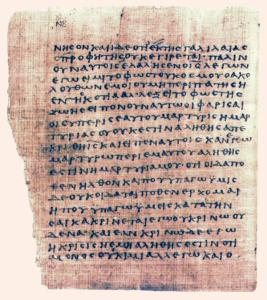 ΝΗϹΟΝ ΚΑΙ ΙΔΕ ΟΤΙ ΕΚ ΤΗϹ ΓΑΛΙΛΑΙΑϹ
Ο ΠΡΟΦΗΤΗϹ ΟΥΚ ΕΓΕΙΡΕΤΑΙ ΠΑΛΙΝ
ΟΥΝ ΑΥΤΟΙϹ ΕΛΑΛΗϹΕΝ Ο ΙϹ ΛΕΓΩΝ
ΕΓΩ ΕΙΜΙ ΤΟ ΦΩϹ ΤΟΥ ΚΟϹΜΟΥ Ο ΑΚΟ
ΛΟΥΘΩΝ ΕΜΟΙ ΟΥ ΜΗ ΠΕΡΙΠΑΤΗϹΗ
ΕΝ ΤΗ ϹΚΟΤΙΑ ΑΛΛ ΕΞΕΙ ΤΟ ΦΩϹ ΤΗϹ
ΖΩΗϹ ΕΙΠΟΝ ΟΥΝ ΑΥΤΩ ΟΙ ΦΑΡΙϹΑΙ
ΟΙ ϹΥ ΠΕΡΙ ϹΕΑΥΤΟΥ ΜΑΡΤΥΡΙϹ Η ΜΑΡ
ΤΥΡΙΑ ϹΟΥ ΟΥΚ ΕϹΤΙΝ ΑΛΗΘΗϹ ΑΠΕ
ΚΡΙΘΗ ΙϹ ΚΑΙ ΕΙΠΕΝ ΑΥΤΟΙϹ ΚΑΝ ΕΓΩ
ΜΑΡΤΥΡΩ ΠΕΡΙ ΕΜΑΥΤΟΥ ΑΛΗΘΗϹ
ΕϹΤΙΝ Η ΜΑΡΤΥΡΙΑ ΜΟΥ ΟΤΙ ΟΙΔΑ ΠΟ
ΘΕΝ ΗΛΘΟΝ ΚΑΙ ΠΟΥ ΥΠΑΓΩ ΥΜΙϹ
ΔΕ ΟΥΚ ΟΙΔΑΤΕ ΠΟΘΕΝ ΕΡΧΟΜΑΙ
Η ΠΟΥ ΥΠΑΓΩ ΥΜΕΙϹ ΚΑΤΑ ΤΗΝ
ΚΡΙΝΕΤΑΙ ΕΓΩ ΟΥ ΚΡΙΝΩ ΟΥ
ΔΕΝΑ ΚΑΙ ΕΑΝ ΚΡΙΝΩ ΔΕ ΕΓΩ
Η ΚΡΙϹΙϹ Η ΕΜΗ ΑΛΗΘΗϹ ΕϹΤΙΝ ΟΤΙ
ΜΟΝΟϹ ΟΥΚ ΕΙΜΙ ΑΛΛ ΕΓΩ ΚΑΙ Ο